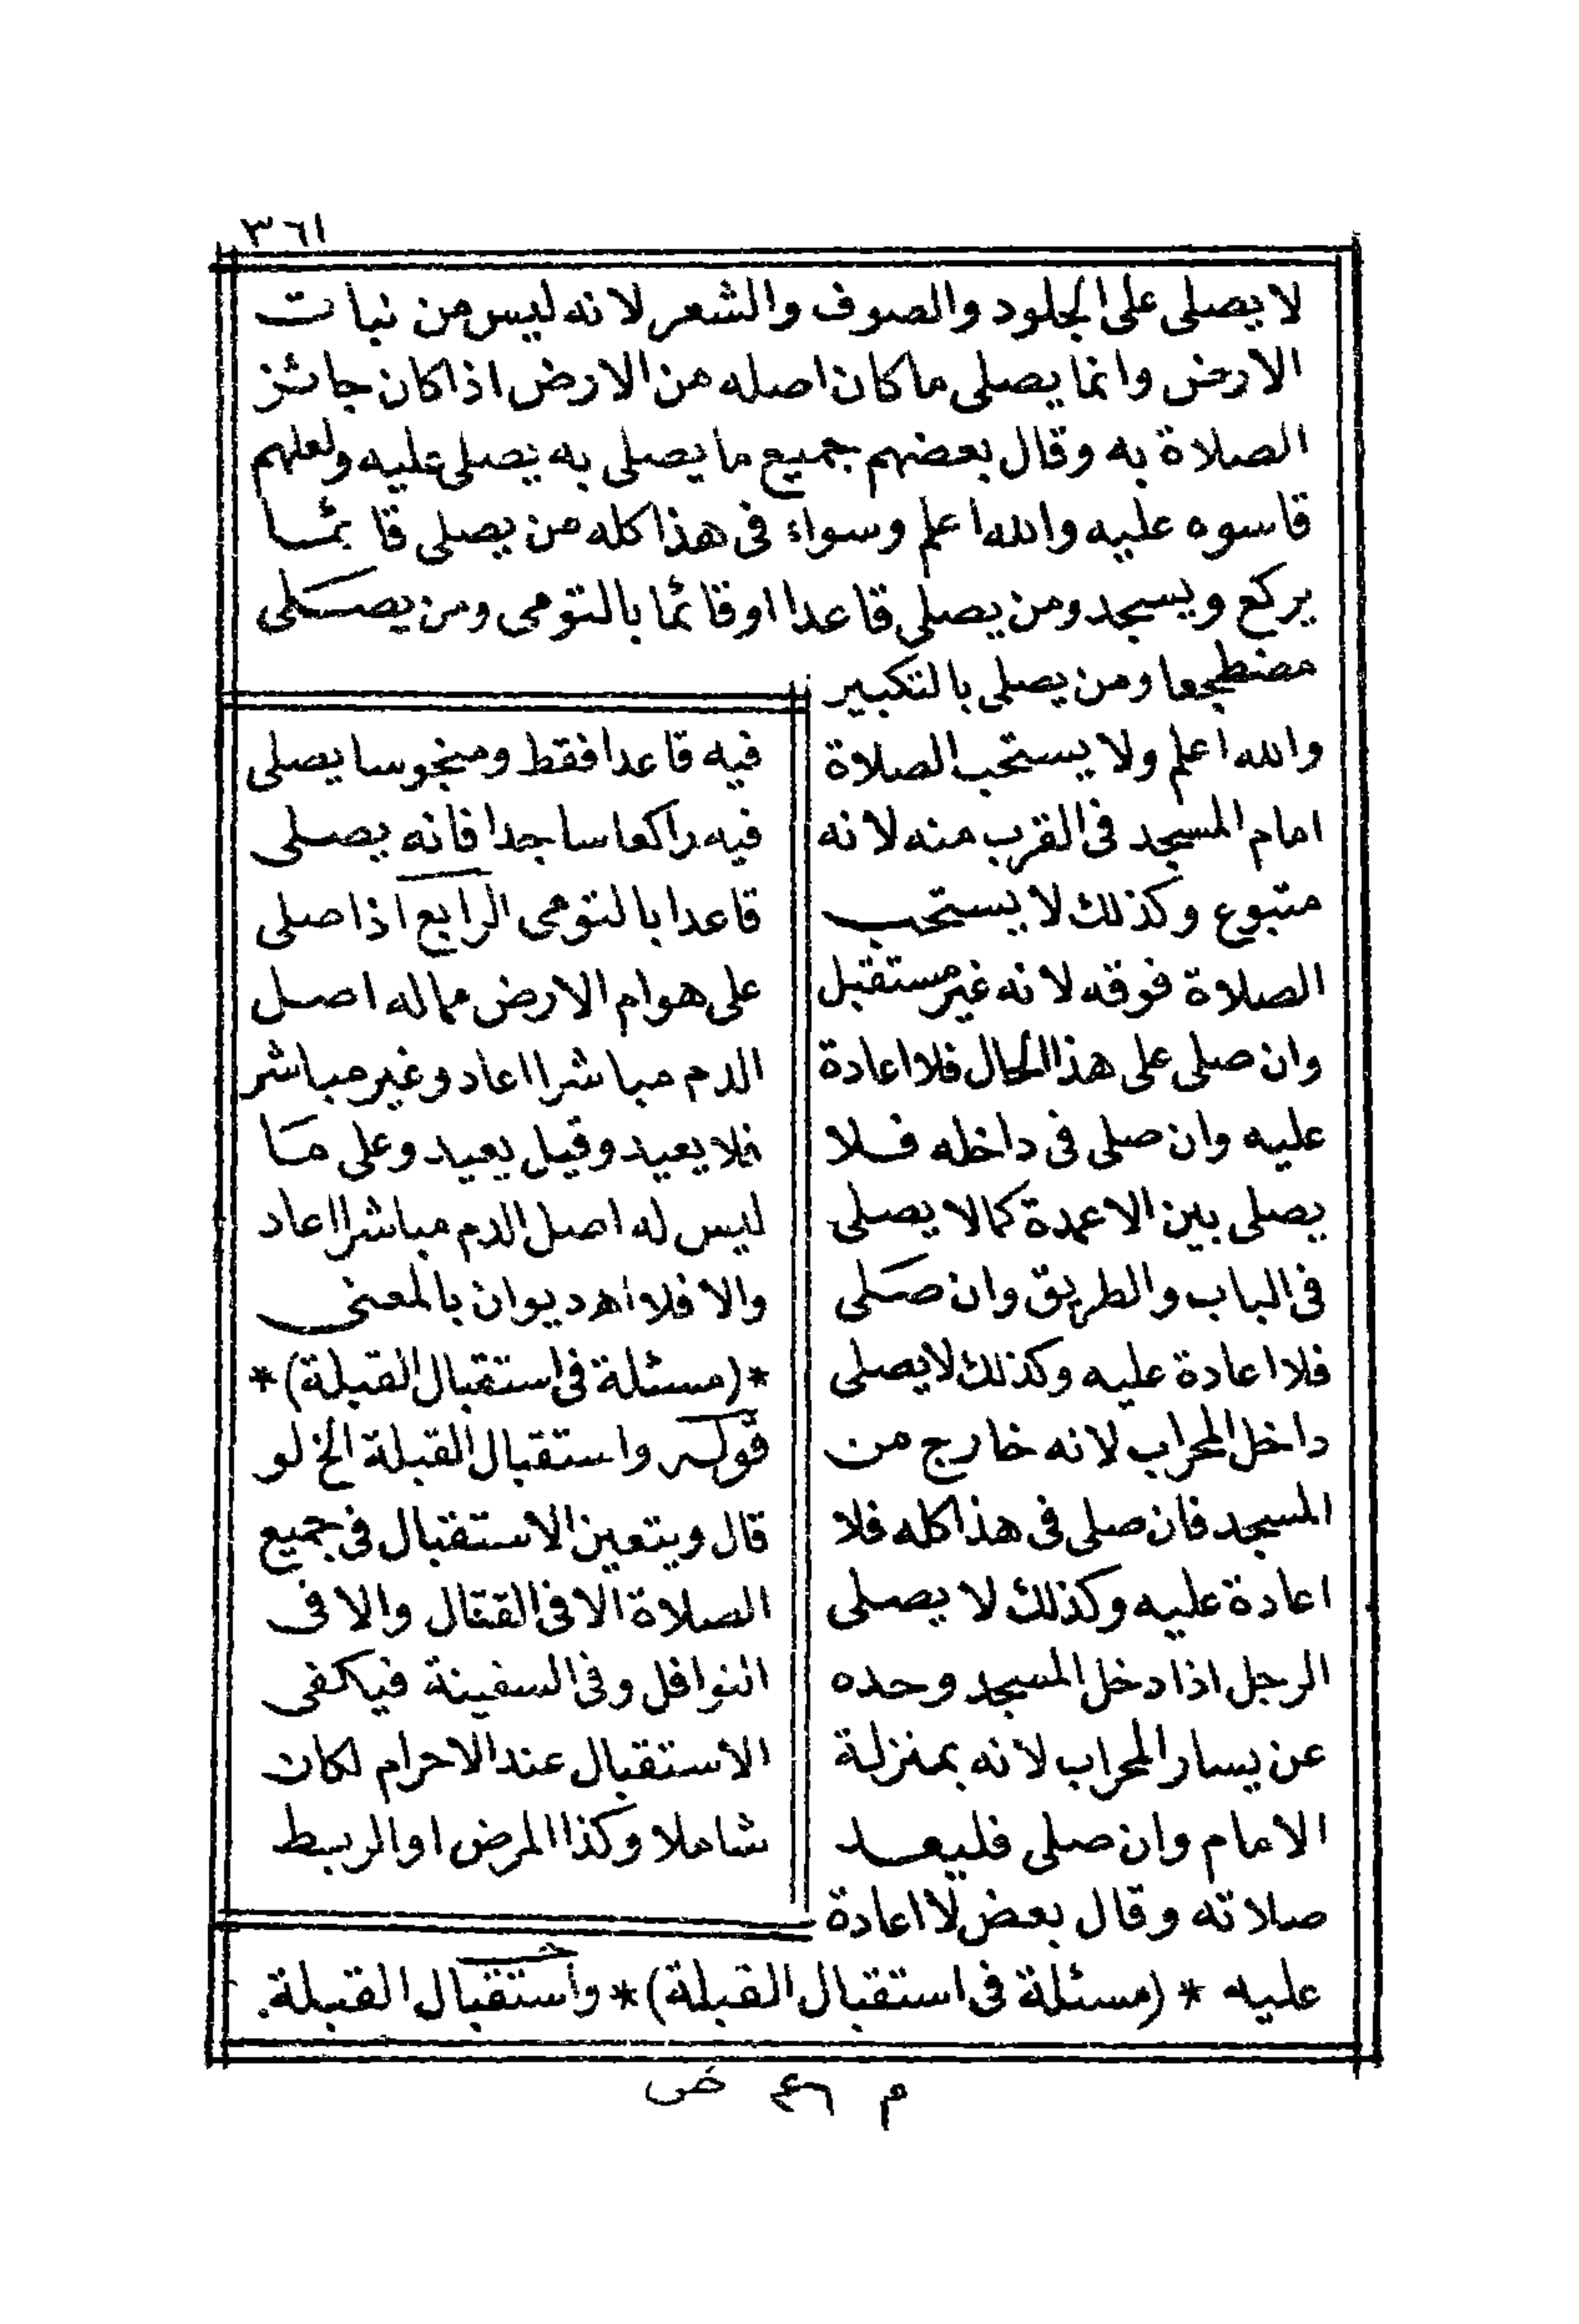 ٣٦١
لا يصلى على الجلود والصوف والشعر لانه ليس من نبات
الارض وانما يصلى ما كان اصله من الارض اذا كان جائز
الصلاة به وقال بعضهم جميع ما يصلى به يصلى عليه ولعلهم
قاسوه عليه والله اعلم وسواء فى هذا كله من يصلى قائما
يركع ويسجد ومن يصلى قاعدا او قائما بالتومى ومن يصلى
مضطجعا ومن يصلى بالتكبير
والله اعلم ولا يستحب الصلاة
امام المسجد فى القرب منه لانه
متبوع وكذلك لا يستحب
الصلاة فوقه لانه غير مستقبل
وان صلى على هذا الحال فلا اعادة
عليه وان صلى فى داخله فلا
يصلى بين الاعمدة كما لا يصلى
فى الباب والطريق وان صلى
فلا اعادة عليه وكذلك لا يصلى
داخل المحراب لانه خارج من
المسجد فان صلى فى هذا كله فلا
اعادة عليه وكذلك لا يصلى
الرجل اذا دخل المسجد وحده
عن يسار المحراب لانه بمنزلة
الامام وان صلى فليعد
صلاته وقال بعض لا اعادة
عليه * (مسئلة فى استقبال القبلة) * واستقبال القبلة.
فيه قاعدا فقط ومنجوسا يصلى
فيه راكعا ساجدا فانه يصلى
قاعدا بالتومى الرابع اذا صلى
على هوام الارض مماله اصل
الدم مباشرا اعاد وغير مباشر
فلا يعيد وقيل يعيد وعلى ما
ليس له اصل الدم مباشرا اعاد
والا فلا اهـ ديوان بالمعنى
* (مسئلة فى استقبال القبلة) *
قوله واستقبال القبلة الخ لو
قال ويتعين الاستقبال فى جميع
الصلاة الا فى القتال والا فى
النوافل وفى السفينة فيكفى
الاستقبال عند الاحرام لكان
شاملا وكذا المرض او الربط
م ٤٦ ض